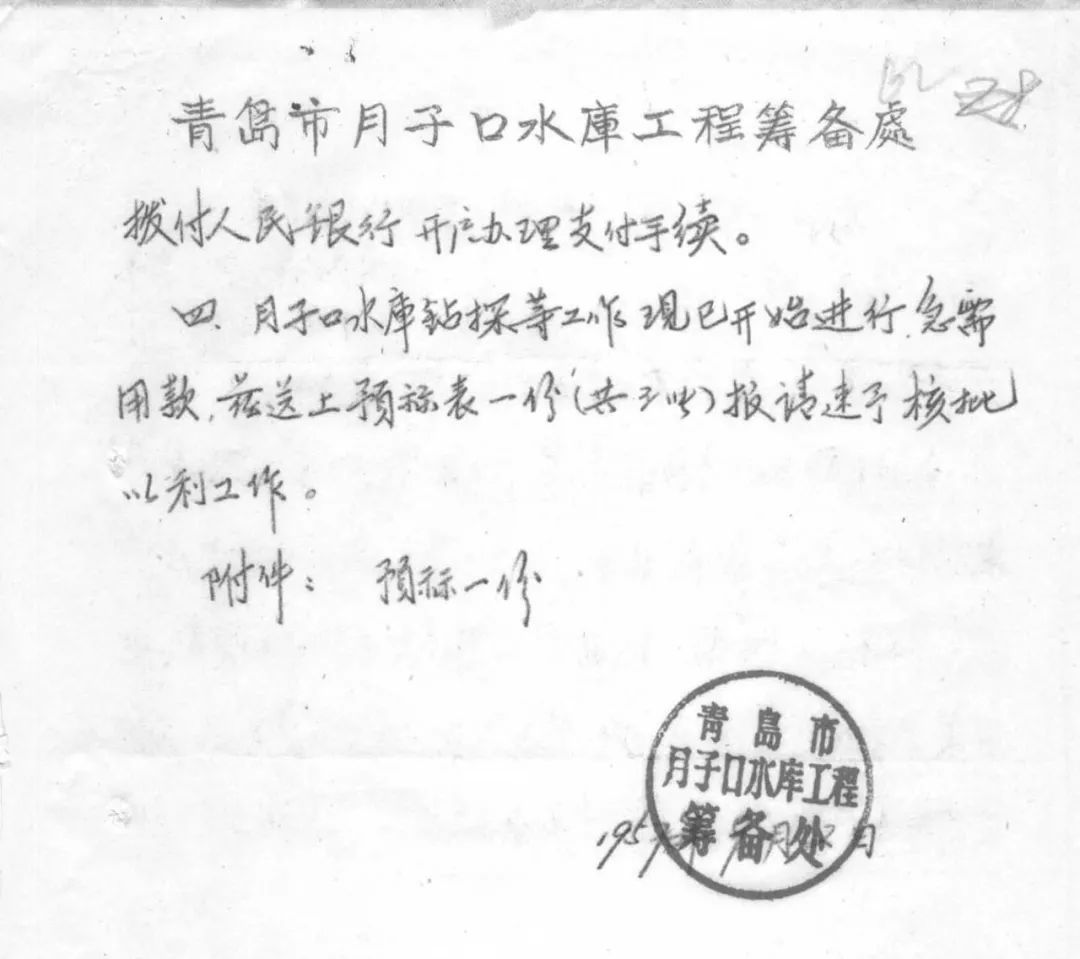 青島市月子口水庫工程筹备處
拨付人民银行开户办理支付手续。
四、月子口水库钻探等工作现已开始进行,急需
用款,兹送上预标表一份(共三)报请速予核批
以利工作。
附件: 预标一份
青島市
月子口水库工程
筹备处
195 月 日